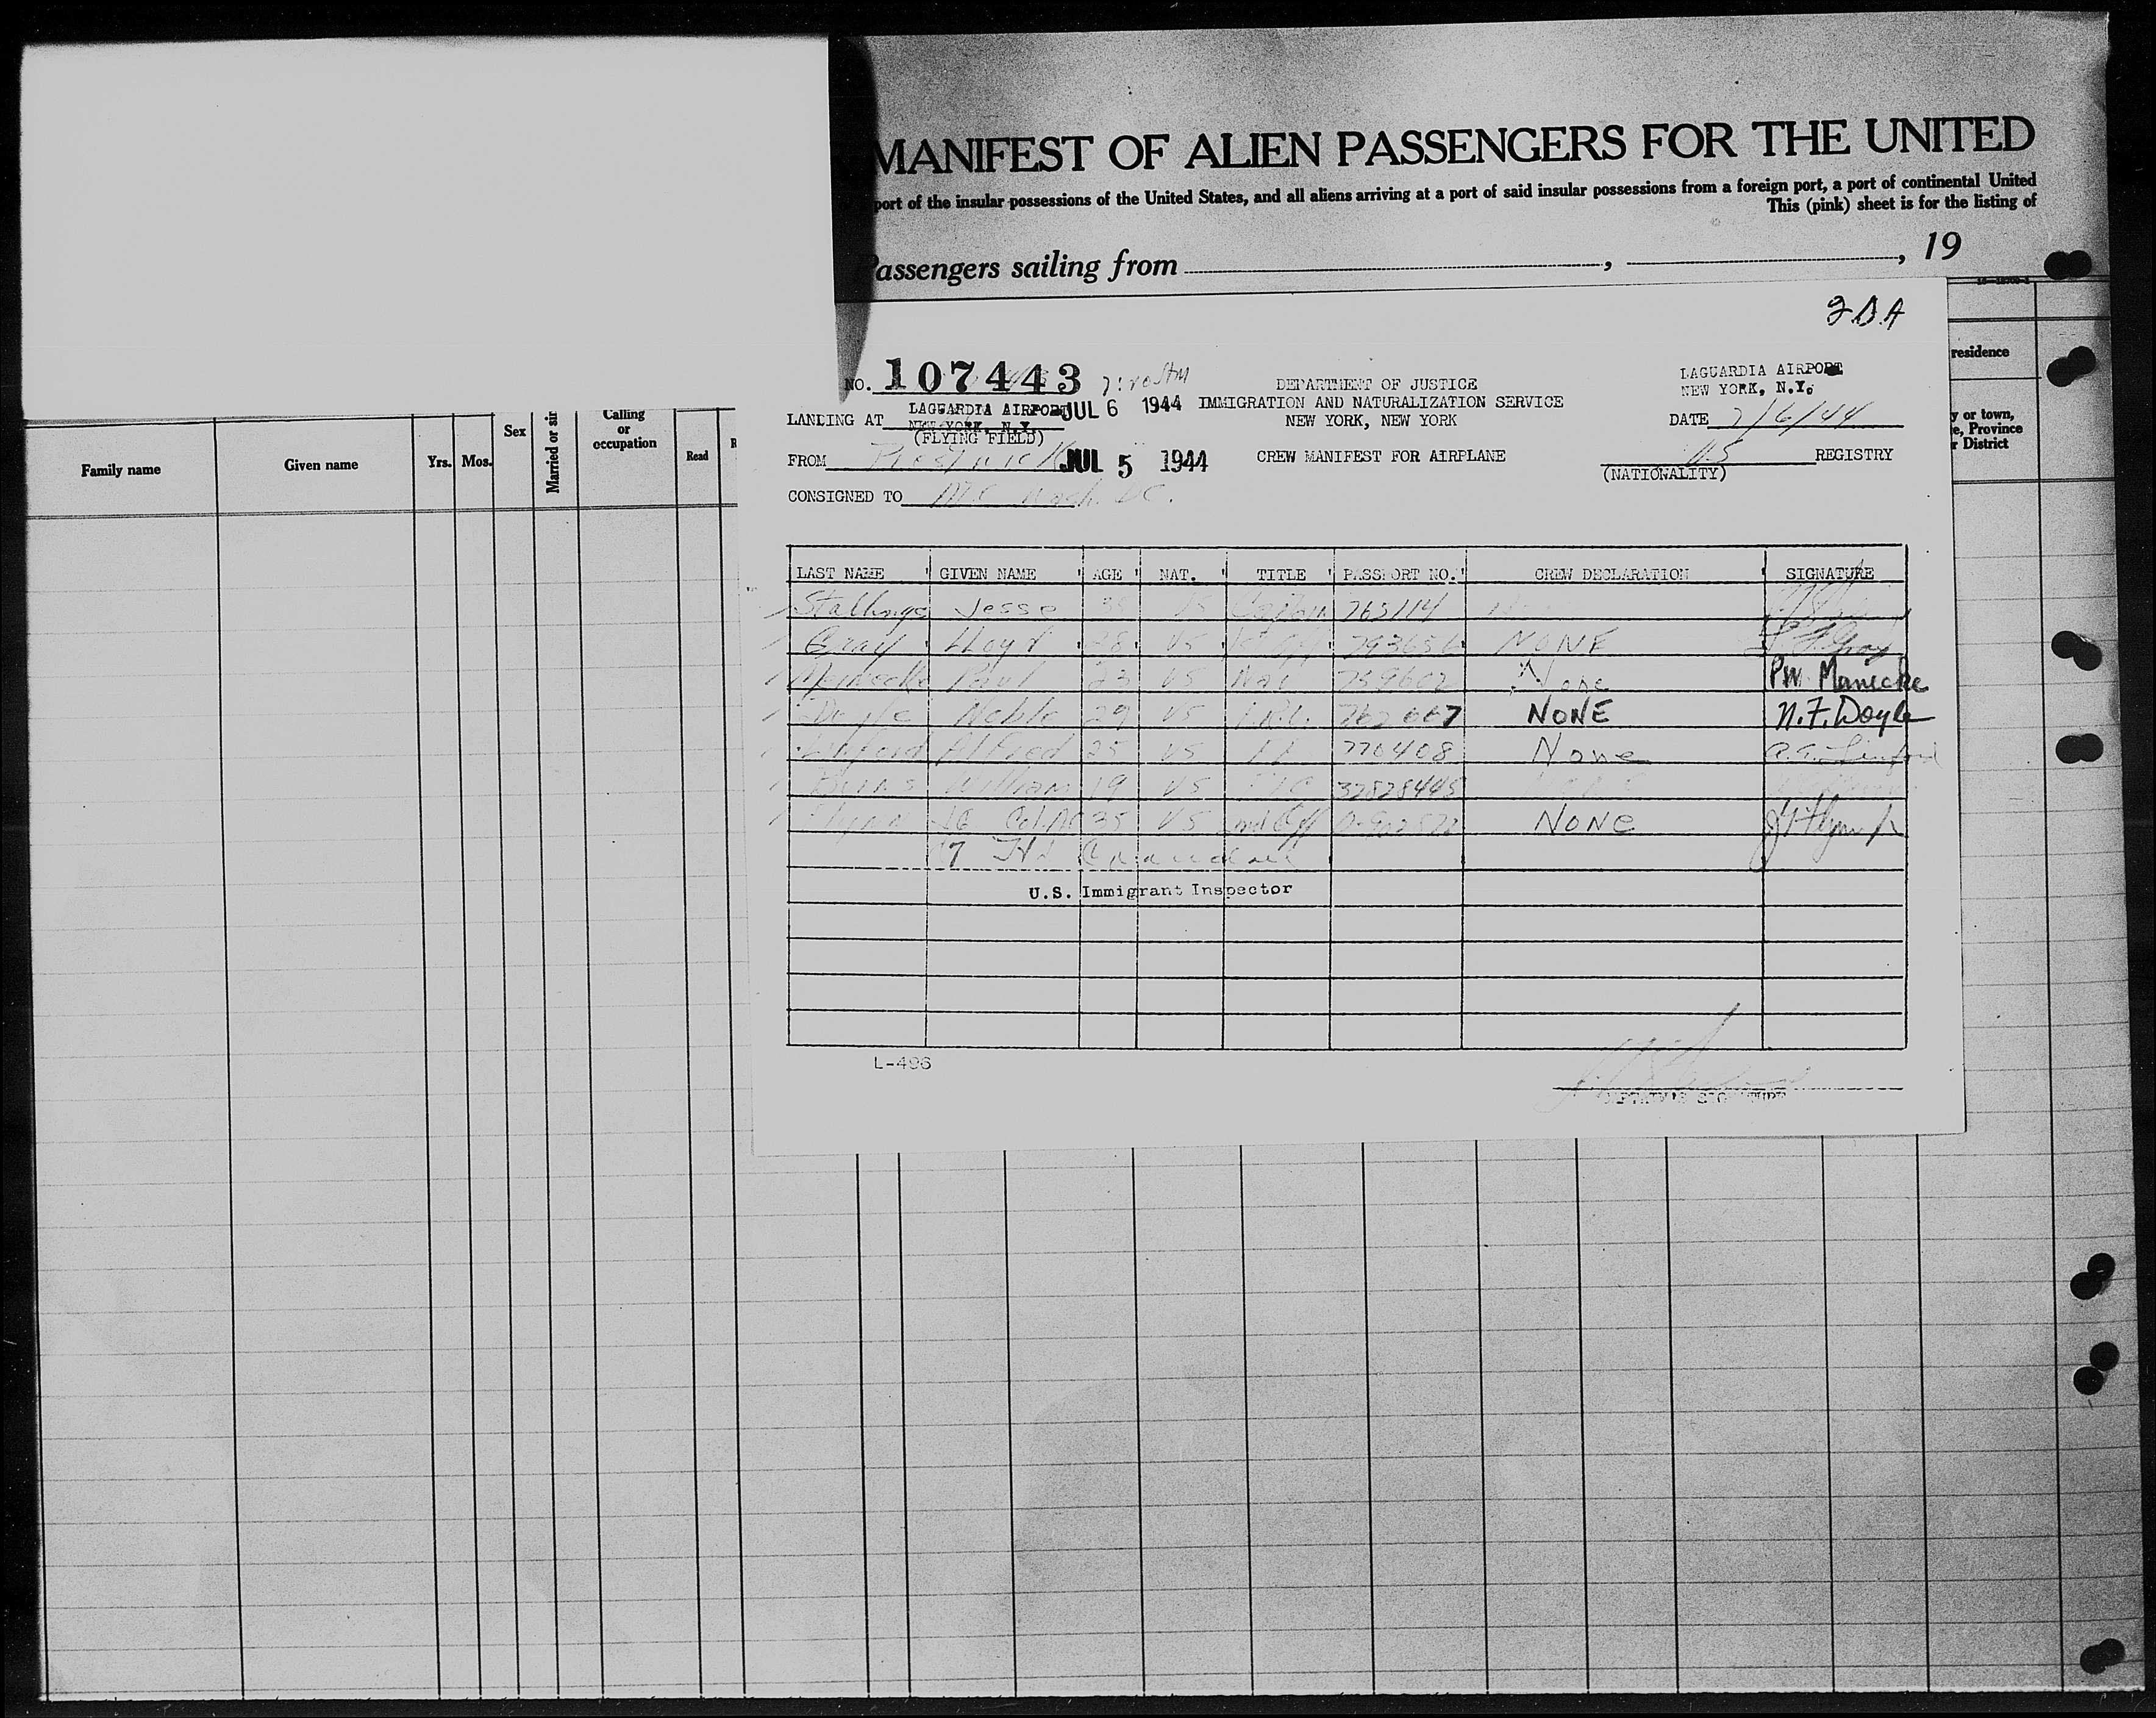 MANIFEST OF ALIEN PASSENGERS FOR THE UNITED
port of the insular possessions of the United States, and all aliens arriving at a port of said insular possessions from a foreign port, a port of continental United
This (pink) sheet is for the listing of
Passengers sailing from , , 19
Family name
Given name
Yrs.
Mos.
Sex
Married or sin
Calling
or
occupation
Read
R
residence
y or town,
e, Province
r District
NO. 107443
DEPARTMENT OF JUSTICE
LAGUARDIA AIRPORT
NEW YORK, N.Y.
LANDING AT LAGUARDIA AIRPORT JUL 6 1944 IMMIGRATION AND NATURALIZATION SERVICE
NEW YORK, N.Y.
(FLYING FIELD)
NEW YORK, NEW YORK
DATE 7/6/44
FROM Prestwick JUL 5 1944 CREW MANIFEST FOR AIRPLANE US REGISTRY
(NATIONALITY)
CONSIGNED TO Wash. DC.
LAST NAME GIVEN NAME AGE NAT. TITLE PASSPORT NO. CREW DECLARATION SIGNATURE
Stallings Jesse US Captain 765114
Gray Lloyd 28 US 793656 NONE
Paul 23 US Nav 759602 None P.W. Manecke
Doyle Noble 29 US 762667 NONE N.F. Doyle
Linford Alfred 25 US 770408 None A. G. Linford
Burns William 19 US 32828445
Flynn 35 US Off NONE
U.S. Immigrant Inspector
L-496
CAPTAIN'S SIGNATURE